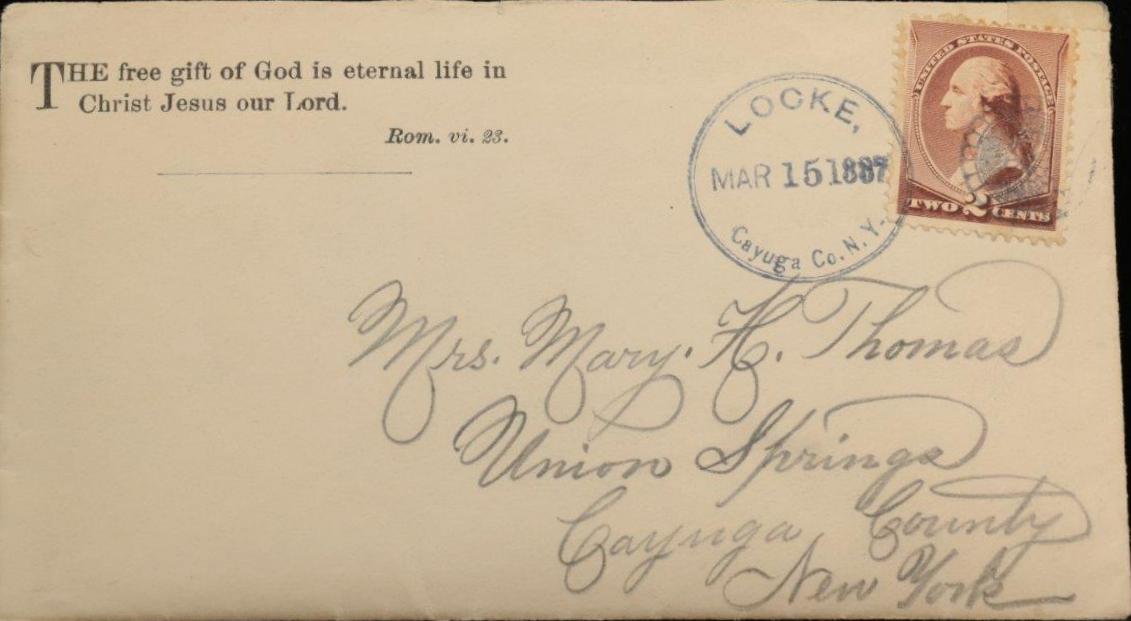 THE free gift of God is eternal life in
Christ Jesus our Lord.
Rom. vi. 23.
LOCKE,
MAR 15 1887
Cayuga Co. N. Y.
UNITED STATES POSTAGE
TWO 2 CENTS
Mrs. Mary. H. Thomas
Union Springs
Cayuga County
New York